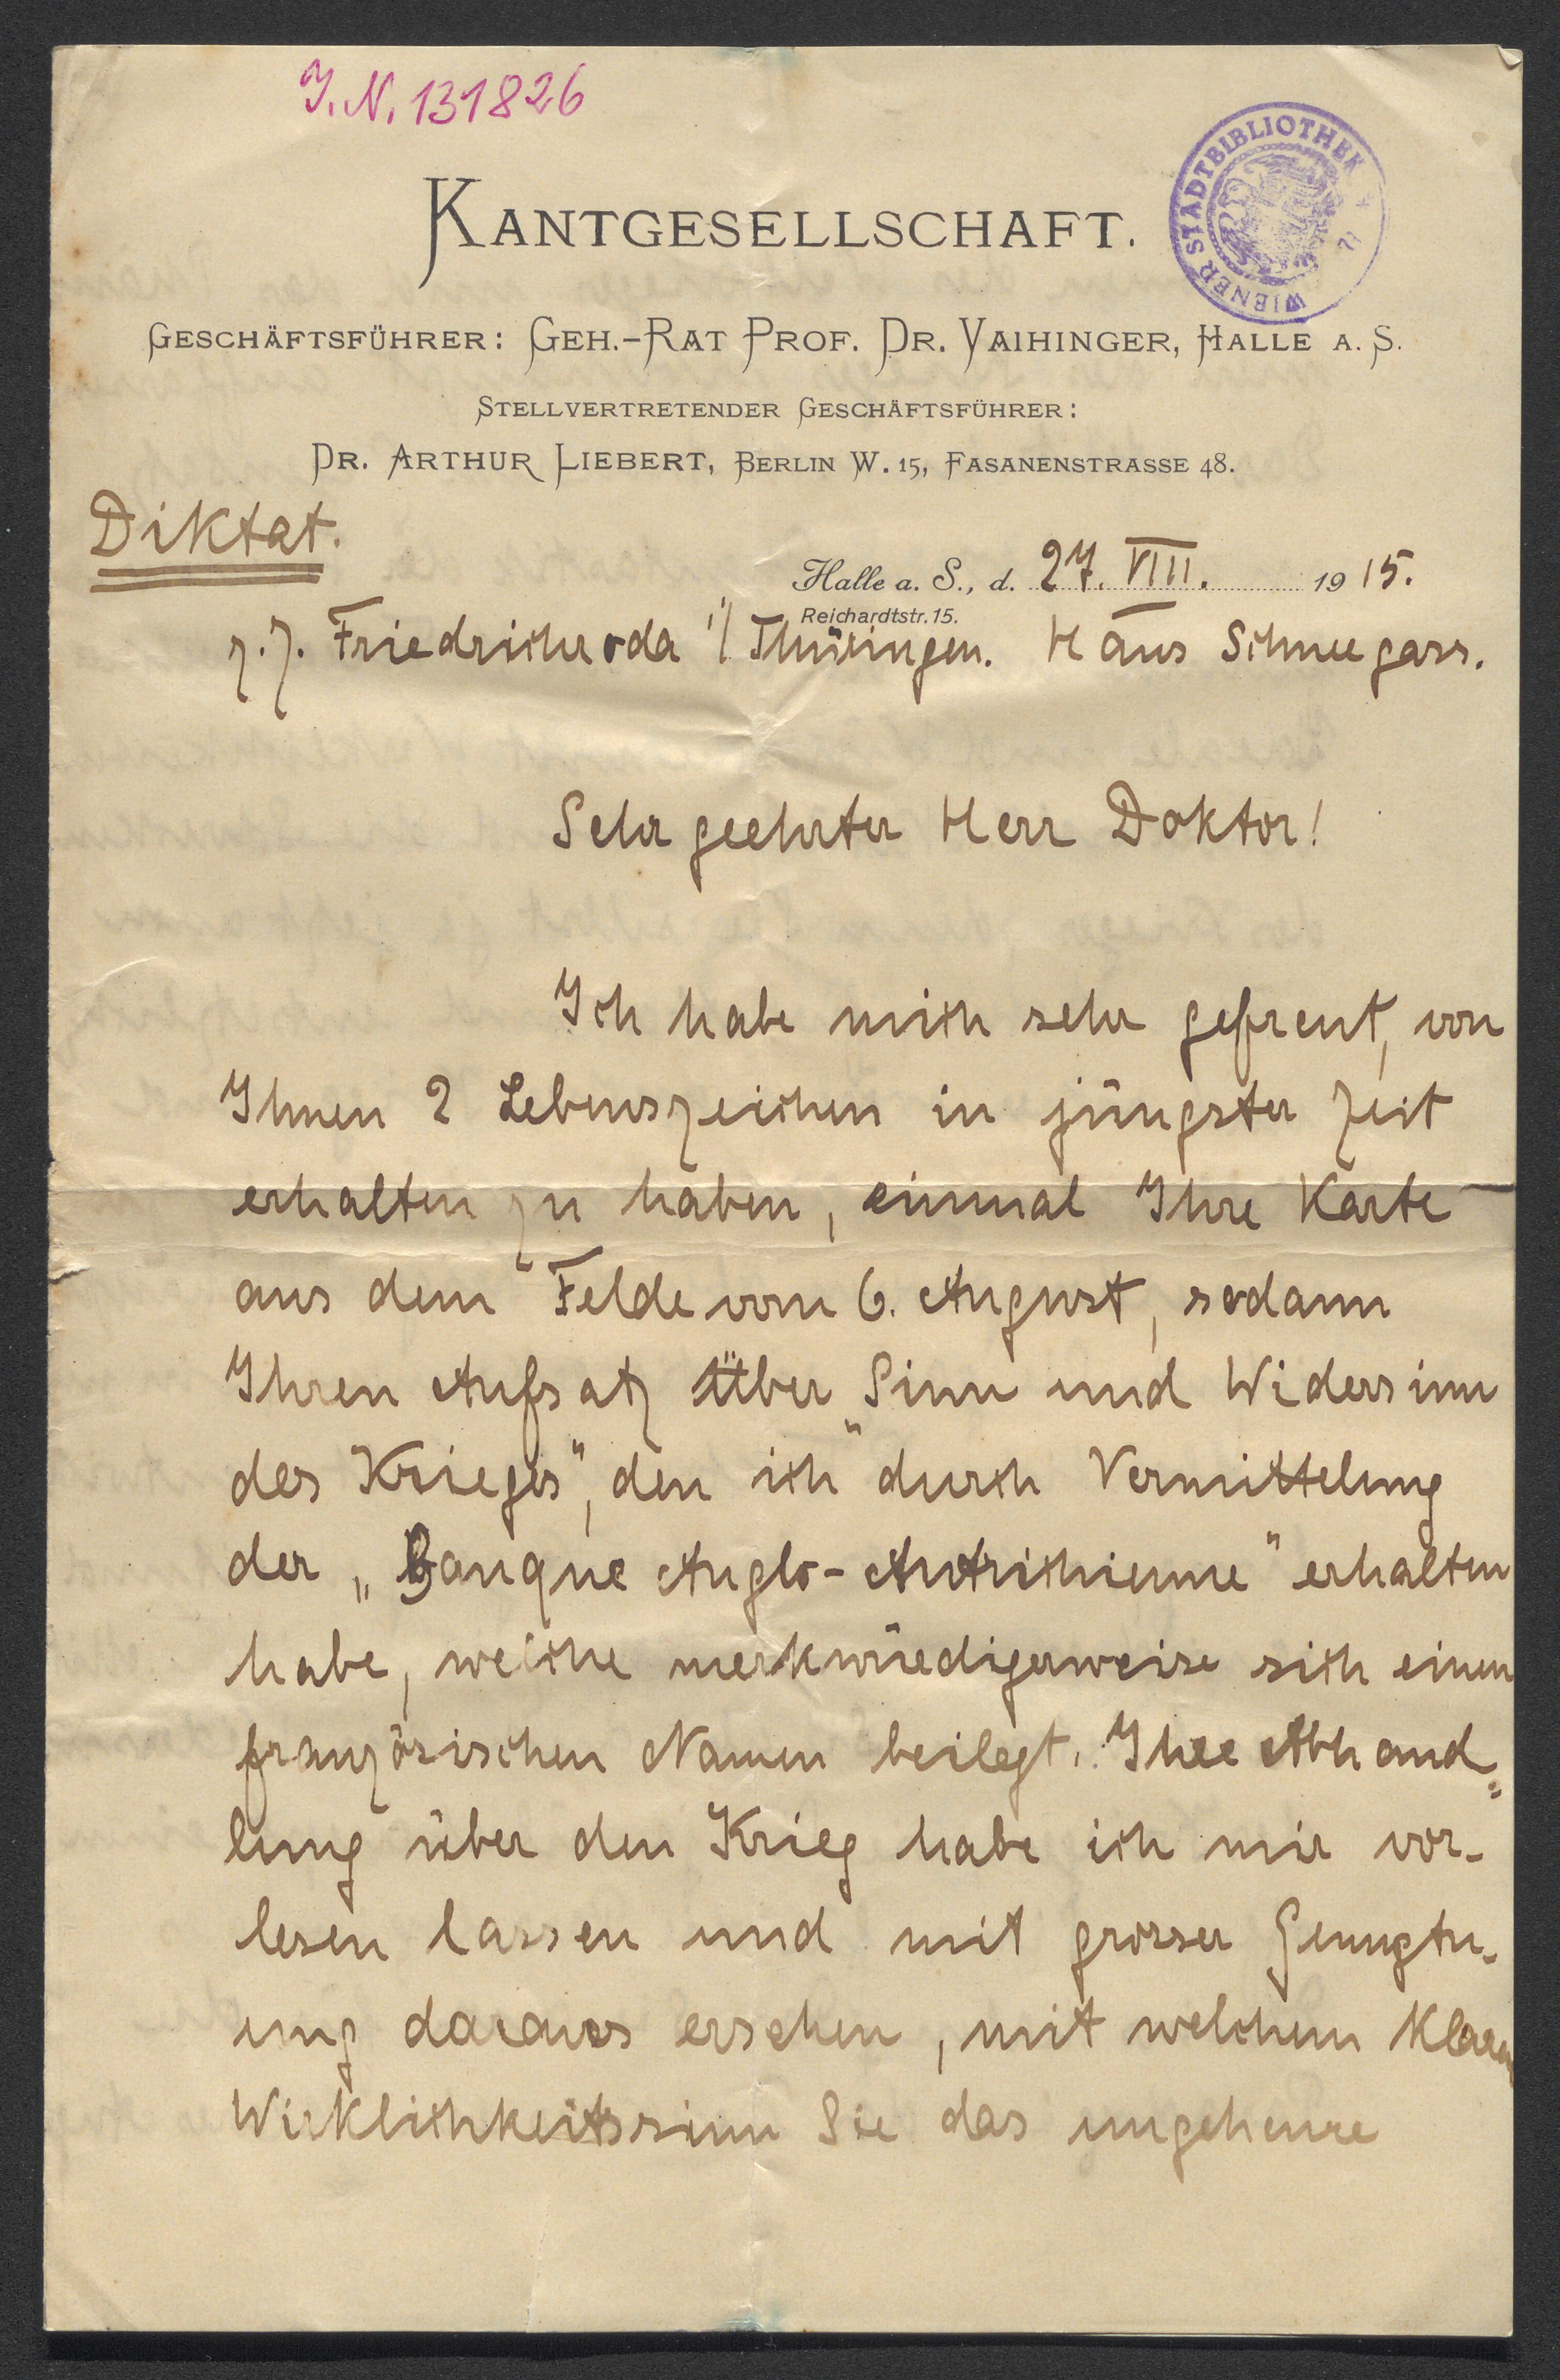 J.N. 131826
WIENER STADTBIBLIOTHEK
KANTGESELLSCHAFT.
GESCHÄFTSFÜHRER: GEH.-RAT PROF. DR. VAIHINGER, HALLE A. S.
STELLVERTRETENDER GESCHÄFTSFÜHRER:
DR. ARTHUR LIEBERT, BERLIN W. 15, FASANENSTRASSE 48.
Diktat.
Halle a. S., d. 27. VIII. 1915.
Reichardtstr. 15.
z. Z. Friedrichroda i/Thüringen. Haus Schneegass.
Sehr geehrter Herr Doktor!
Ich habe mich sehr gefreut, von
Ihnen 2 Lebenszeichen in jüngster Zeit
erhalten zu haben, einmal Ihre Karte
aus dem Felde vom 6. August, sodann
Ihren Aufsatz über „Sinn und Widersinn
des Krieges“, den ich durch Vermittelung
der „Banque Anglo-Autrichienne“ erhalten
habe, welche merkwürdigerweise sich einen
französischen Namen beilegt. Ihre Abhand=
lung über den Krieg habe ich mir vor-
lesen lassen und mit grosser Genugtu-
ung daraus ersehen, mit welchem klaren
Wirklichkeitssinn Sie das ungeheure